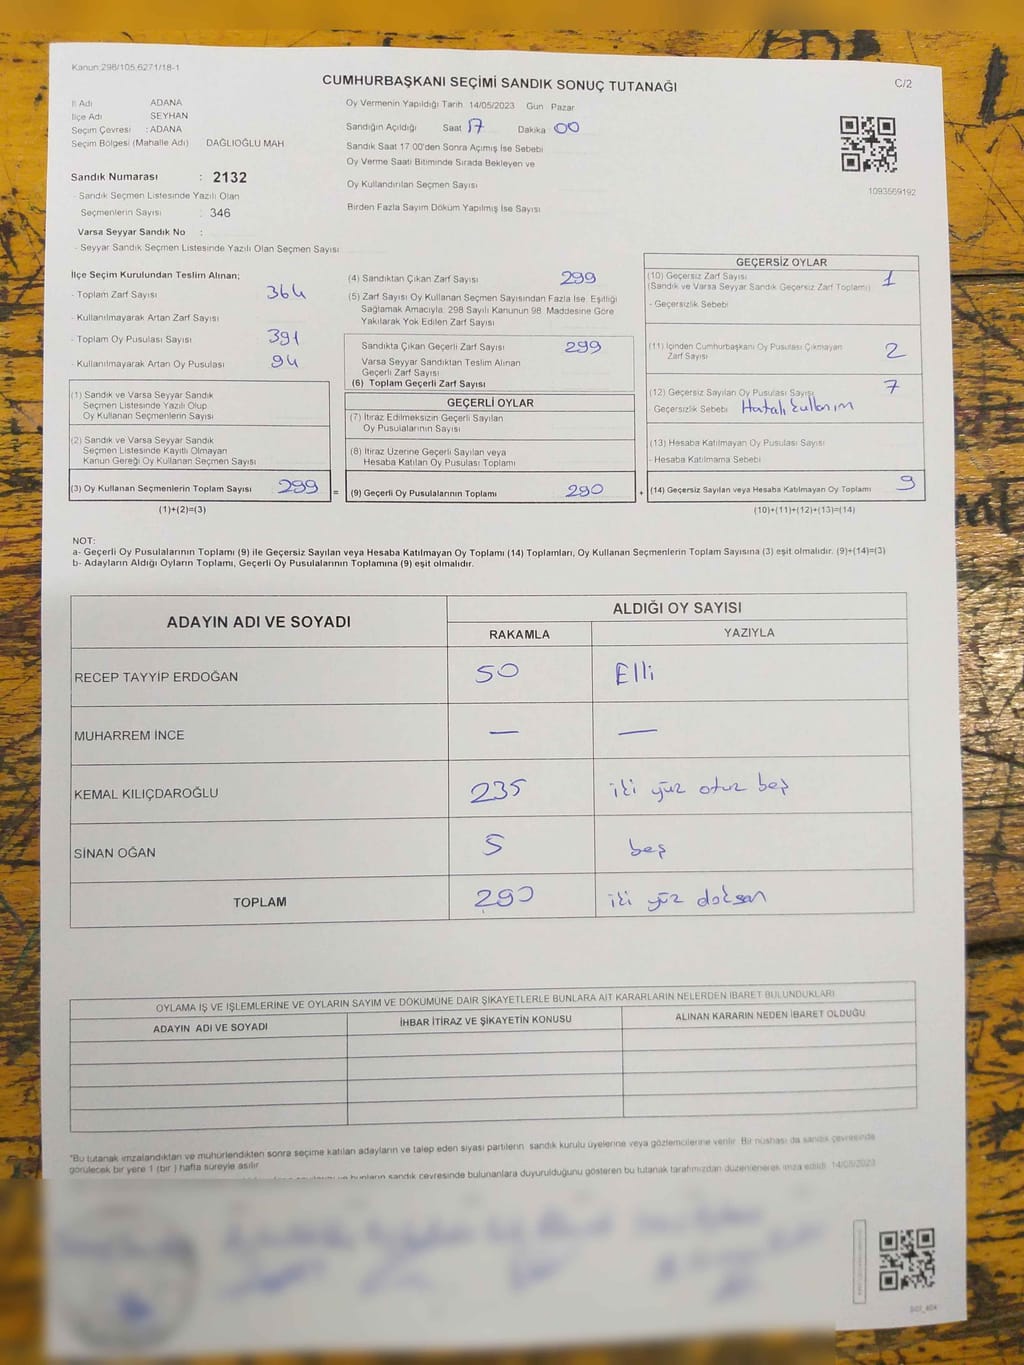 Kanun:298/105,6271/18-1
CUMHURBAŞKANI SEÇİMİ SANDIK SONUÇ TUTANAĞI
C/2
İl Adı ADANA
İlçe Adı SEYHAN
Seçim Çevresi : ADANA
Seçim Bölgesi (Mahalle Adı) DAĞLIOĞLU MAH
Sandık Numarası : 2132
- Sandık Seçmen Listesinde Yazılı Olan
Seçmenlerin Sayısı : 346
Varsa Seyyar Sandık No :
- Seyyar Sandık Seçmen Listesinde Yazılı Olan Seçmen Sayısı
Oy Vermenin Yapıldığı Tarih 14/05/2023 Gün Pazar
Sandığın Açıldığı Saat 17 Dakika 00
Sandık Saat 17:00'den Sonra Açılmış İse Sebebi
Oy Verme Saati Bitiminde Sırada Bekleyen ve
Oy Kullandırılan Seçmen Sayısı
Birden Fazla Sayım Döküm Yapılmış İse Sayısı
1093569192
İlçe Seçim Kurulundan Teslim Alınan;
- Toplam Zarf Sayısı 364
- Kullanılmayarak Artan Zarf Sayısı
- Toplam Oy Pusulası Sayısı 391
- Kullanılmayarak Artan Oy Pusulası 94
(1) Sandık ve Varsa Seyyar Sandık
Seçmen Listesinde Yazılı Olup
Oy Kullanan Seçmenlerin Sayısı
(2) Sandık ve Varsa Seyyar Sandık
Seçmen Listesinde Kayıtlı Olmayan
Kanun Gereği Oy Kullanan Seçmen Sayısı
(3) Oy Kullanan Seçmenlerin Toplam Sayısı 299 =
(1)+(2)=(3)
(4) Sandıktan Çıkan Zarf Sayısı 299
(5) Zarf Sayısı Oy Kullanan Seçmen Sayısından Fazla İse, Eşitliği
Sağlamak Amacıyla; 298 Sayılı Kanunun 98. Maddesine Göre
Yakılarak Yok Edilen Zarf Sayısı
Sandıkta Çıkan Geçerli Zarf Sayısı 299
Varsa Seyyar Sandıktan Teslim Alınan
Geçerli Zarf Sayısı
(6) Toplam Geçerli Zarf Sayısı
GEÇERLİ OYLAR
(7) İtiraz Edilmeksizin Geçerli Sayılan
Oy Pusulalarının Sayısı
(8) İtiraz Üzerine Geçerli Sayılan veya
Hesaba Katılan Oy Pusulası Toplamı
(9) Geçerli Oy Pusulalarının Toplamı 290 +
GEÇERSİZ OYLAR
(10) Geçersiz Zarf Sayısı 1
(Sandık ve Varsa Seyyar Sandık Geçersiz Zarf Toplamı)
- Geçersizlik Sebebi
(11) İçinden Cumhurbaşkanı Oy Pusulası Çıkmayan
Zarf Sayısı 2
(12) Geçersiz Sayılan Oy Pusulası Sayısı 7
- Geçersizlik Sebebi Hatalı kullanım
(13) Hesaba Katılmayan Oy Pusulası Sayısı
- Hesaba Katılmama Sebebi
(14) Geçersiz Sayılan veya Hesaba Katılmayan Oy Toplamı 9
(10)+(11)+(12)+(13)=(14)
NOT:
a- Geçerli Oy Pusulalarının Toplamı (9) ile Geçersiz Sayılan veya Hesaba Katılmayan Oy Toplamı (14) Toplamları, Oy Kullanan Seçmenlerin Toplam Sayısına (3) eşit olmalıdır. (9)+(14)=(3)
b- Adayların Aldığı Oyların Toplamı, Geçerli Oy Pusulalarının Toplamına (9) eşit olmalıdır.
ADAYIN ADI VE SOYADI
ALDIĞI OY SAYISI
RAKAMLA YAZIYLA
RECEP TAYYİP ERDOĞAN 50 Elli
MUHARREM İNCE — —
KEMAL KILIÇDAROĞLU 235 iki yüz otuz beş
SİNAN OĞAN 5 beş
TOPLAM 290 iki yüz doksan
OYLAMA İŞ VE İŞLEMLERİNE VE OYLARIN SAYIM VE DÖKÜMÜNE DAİR ŞİKAYETLERLE BUNLARA AİT KARARLARIN NELERDEN İBARET BULUNDUKLARI
ADAYIN ADI VE SOYADI İHBAR İTİRAZ VE ŞİKAYETİN KONUSU ALINAN KARARIN NEDEN İBARET OLDUĞU
*Bu tutanak imzalandıktan ve mühürlendikten sonra seçime katılan adayların ve talep eden siyasi partilerin sandık kurulu üyelerine veya gözlemcilerine verilir. Bir nüshası da sandık çevresinde
görülecek bir yere 1 (bir ) hafta süreyle asılır.
ve bunların sandık çevresinde bulunanlara duyurulduğunu gösteren bu tutanak tarafımızdan düzenlenerek imza edildi. 14/05/2023